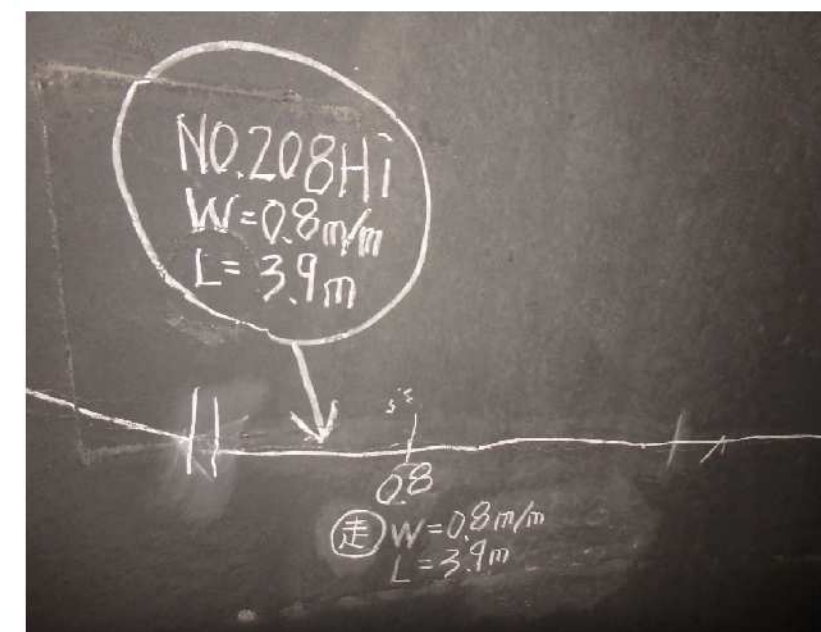 NO.208Hi
W=0.8m/m
L=3.9m
0.8
走 W=0.8m/m
L=3.9m